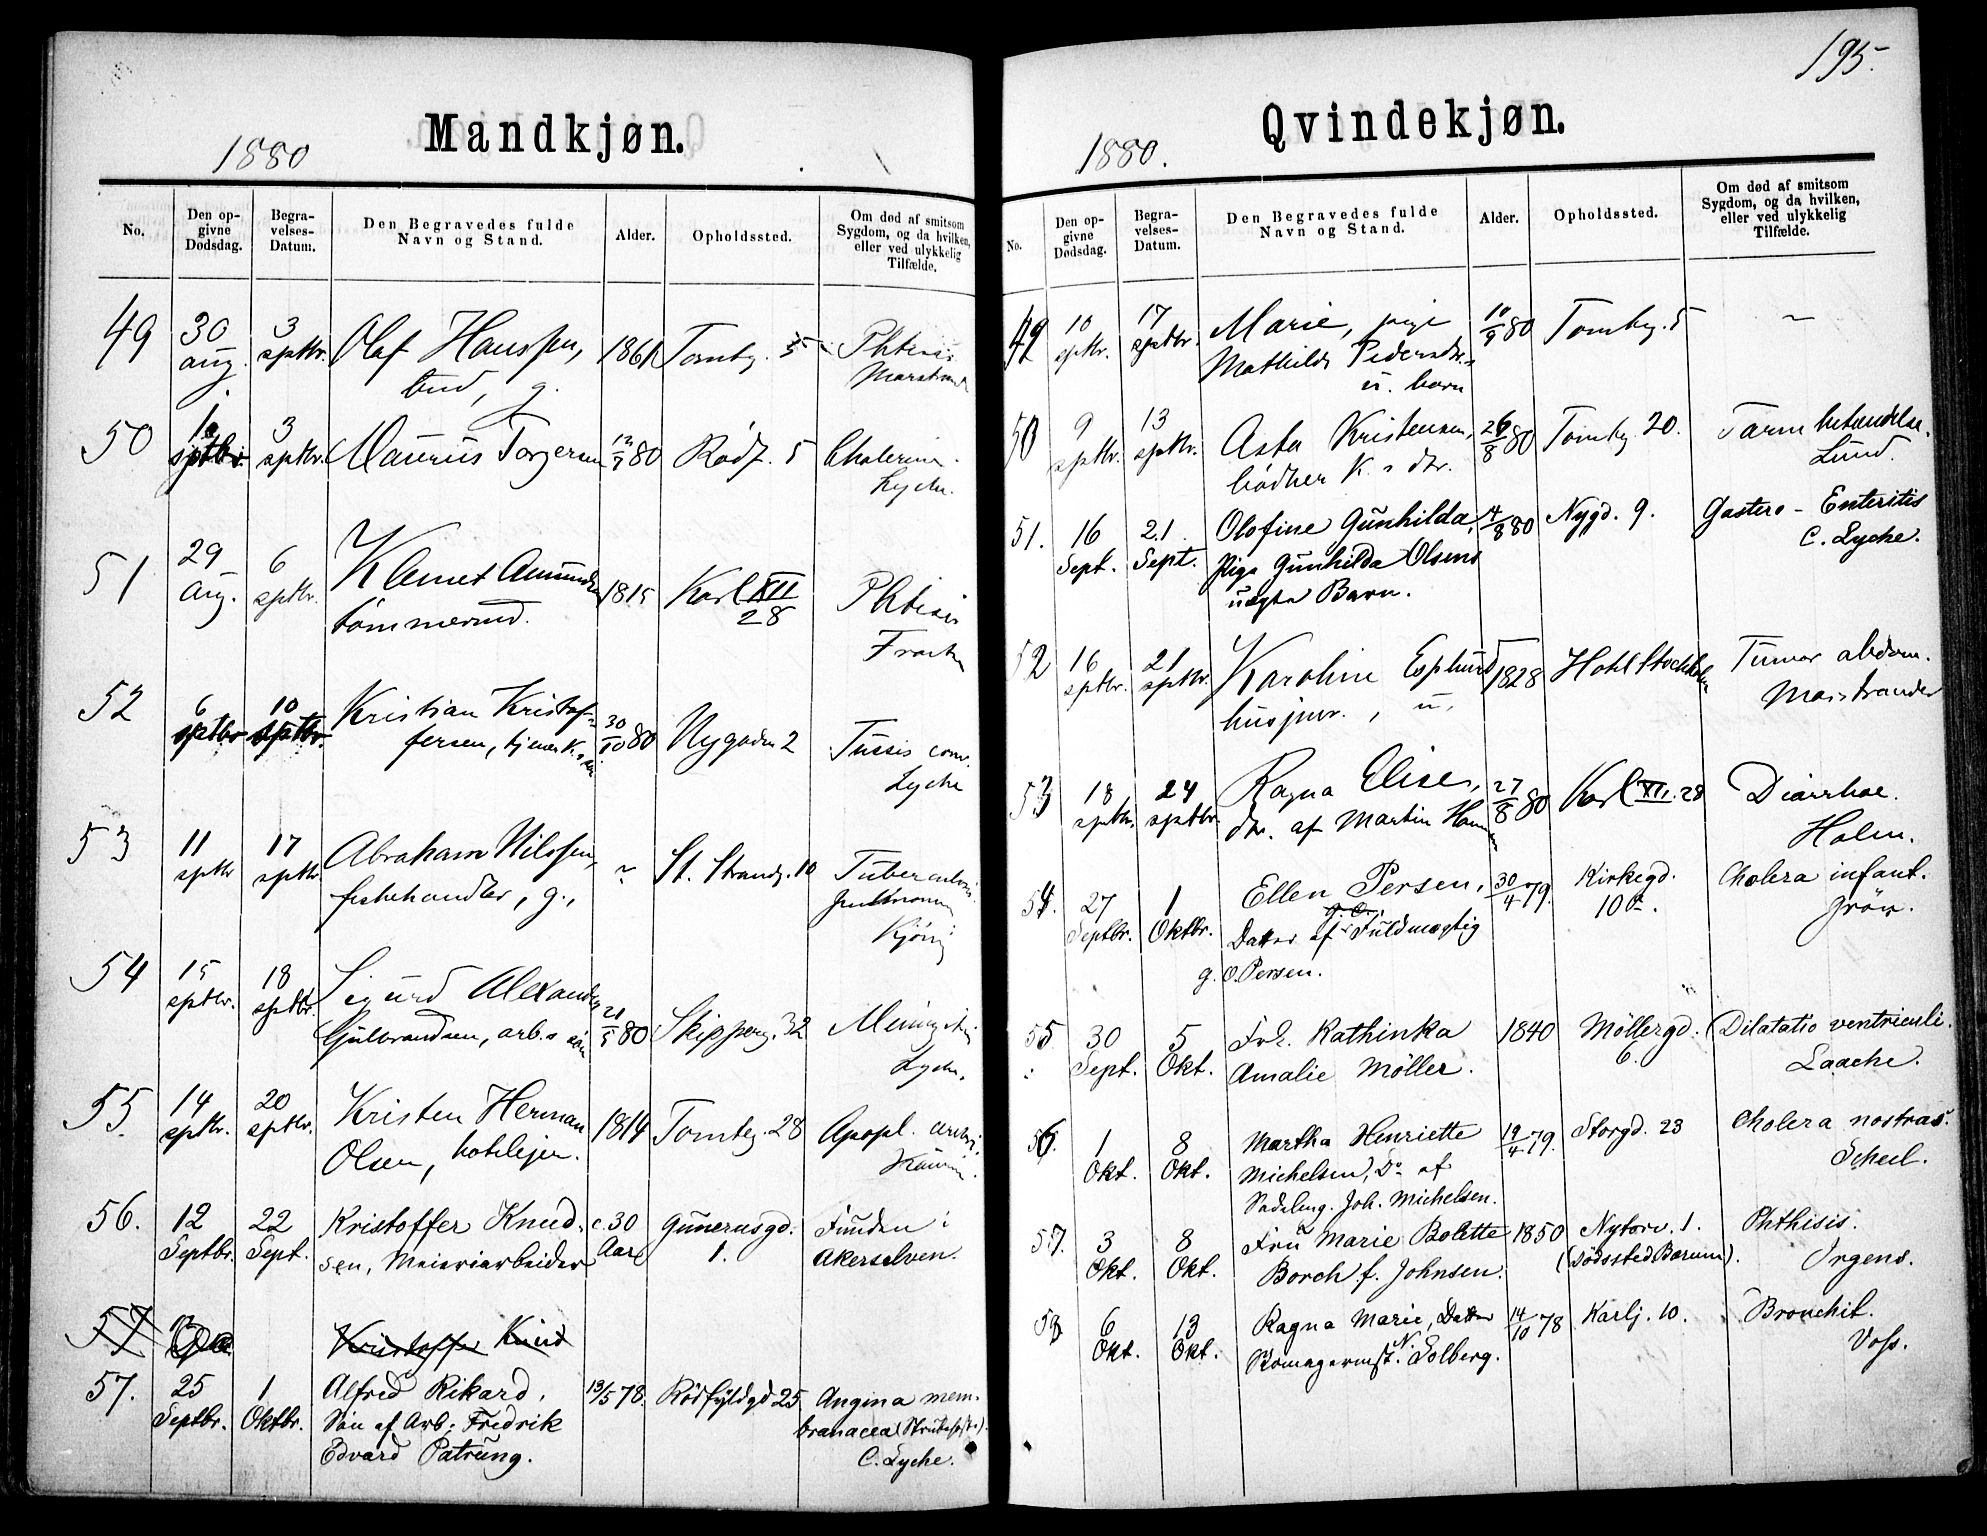 195.
Mandkjøn.
1880
No.
Den op-
givne
Dødsdag.
Begra-
velses-
Datum.
Den Begravedes fulde
Navn og Stand.
Alder.
Opholdssted.
Om død af smitsom
Sygdom, og da hvilken,
eller ved ulykkelig
Tilfælde.
49 30 aug. 3 sptbr. Olaf Hanssen,
bud, g. 1861 Tomtg. 5 Phtisis
50 1 sptbr. 3 sptbr. Maurius Torgersen 12/7 80 Rødf. 5 Cholerine.
Lyche.
51 29 Aug. 6 sptbr. Klemet Amundsen
tømmermd. 1815 Karl XII
28 Phtisis
52 6 sptbr 10 sptbr. Kristian Kristof-
fersen, tjener K.s søn 30/10 80 Nygaden 2 Tussis conv.
Lyche
53 11 sptbr 17 sptbr. Abraham Nilssen,
fiskehandler, g., ~ St. Strandg. 10
54 15 sptbr. 18 sptbr. Sigurd Alexander
Gulbrandsen, arb.s søn 21/5 80 Skipperg. 32
Lyche.
55. 14 sptbr. 20 sptbr. Kristen Herman
Olsen, 1814 Tomteg. 28 Apopl.
56. 12 Septbr. 22 Sept. Kristoffer Knud-
sen, Meieriarbeider c. 30
Aar Gunerusgd.
1. Funden i
Akerselven.
57
Kristoffer Knud
57. 25 Septbr. 1 Oktbr. Alfred Rikard,
Søn af Arb. Fredrik
Edvard Patrung. 13/5 78. Rødfyldgd 25 Angina mem-
branacea (Strubehoste).
C. Lyche.
Qvindekjøn.
1880.
No.
Den op-
givne
Dødsdag.
Begra-
velses-
Datum.
Den Begravedes fulde
Navn og Stand.
Alder.
Opholdssted.
Om død af smitsom
Sygdom, og da hvilken,
eller ved ulykkelig
Tilfælde.
49 10 sptbr. 17 sptbr. Marie, pige
Mathilde Pedersdtr.s
u. barn 10/9 80 Tomteg. 5 ~
50 9 sptbr. 13 sptbr. Asta Kristensen,
bødker K.s dtr. 26/8 80 Tomteg. 20. Tarmbetændelse.
Lund.
51. 16 Sept. 21 Sept. Olofine Gunhilda,
Pige Gunhilda Olsens
uægte Barn. 14/8 80 Nygd. 9. Gastero-Enteritis
C. Lyche.
52 16 sptbr. 21 sptbr. Karoline Esplund
husjmr., u. 1828 Hotl Stockholm Tumor abdom.
53 18 sptbr. 24 sptbr. Ragna Elise,
dtr. af Martin Hansen 27/8 80 Karl XII. 28 Diarrhoe.
Holm.
54. 27 Septbr. 1 Oktbr. Ellen Persen,
G. O.
Datter af Fuldmægtig
G. O. Persen. 30/4 79. Kirkegd.
10 a. Cholera infant.
Grøn.
55 30 Sept. 5 Okt. Frk. Kathinka
Amalie Møller. 1840 Møllergd.
6. Dilatatio ventriculi.
Laache.
56. 1 Okt. 8 Okt. Martha Henriette
Michelsen, Dr af
Sadelmg. Joh. Michelsen. 19/4 79. Storgd. 23 Cholera nostras.
Scheel.
57. 3 Okt. 8 Okt. Fru Marie Bolette
Borch f. Johnsen. 1850 Nytorv. 1.
(Dødssted Bærum). Phthisis.
Ørgens.
58 6 Okt. 13 Okt. Ragna Marie, Datter
Skomagermst. N. Solberg. 14/10 78 Karlj. 10. Bronchit.
Voss.